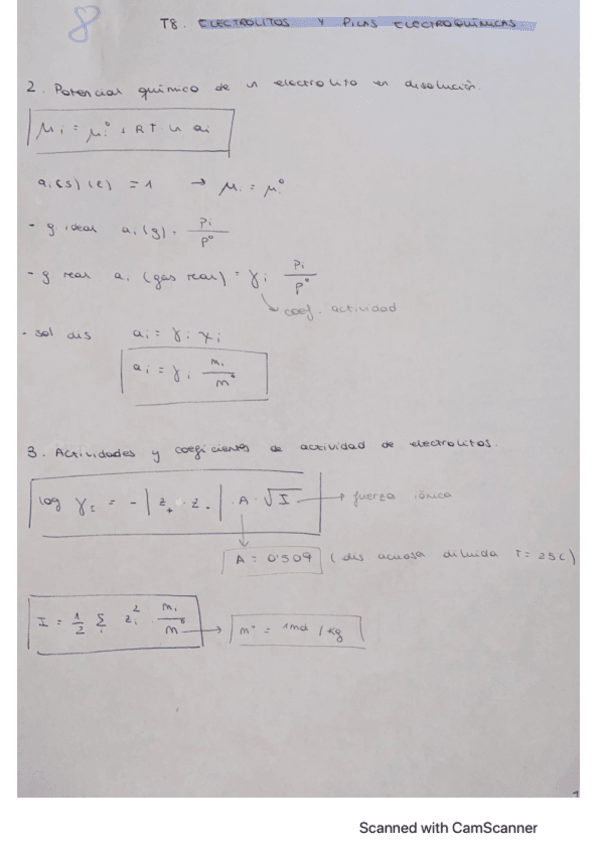 8
T8. ELECTROLITOS Y PILAS ELECTROQUÍMICAS
2. Potencial químico de un electrolito en disolución.
μi = μi° + RT ln ai
ai(s)(l) = 1 → μi = μi°
- g ideal ai(g) = Pi/P°
- g real ai (gas real) = γi Pi/P°
coef. actividad
- sol dis ai = γi χi
ai = γi mi/m°
3. Actividades y coeficientes de actividad de electrolitos.
log γ± = - | z+ · z- | · A · √I → fuerza iónica
A = 0'509 (dis acuosa diluida T = 25C)
I = 1/2 Σi zi² mi/m° → m° = 1mol / kg
1
Scanned with CamScanner